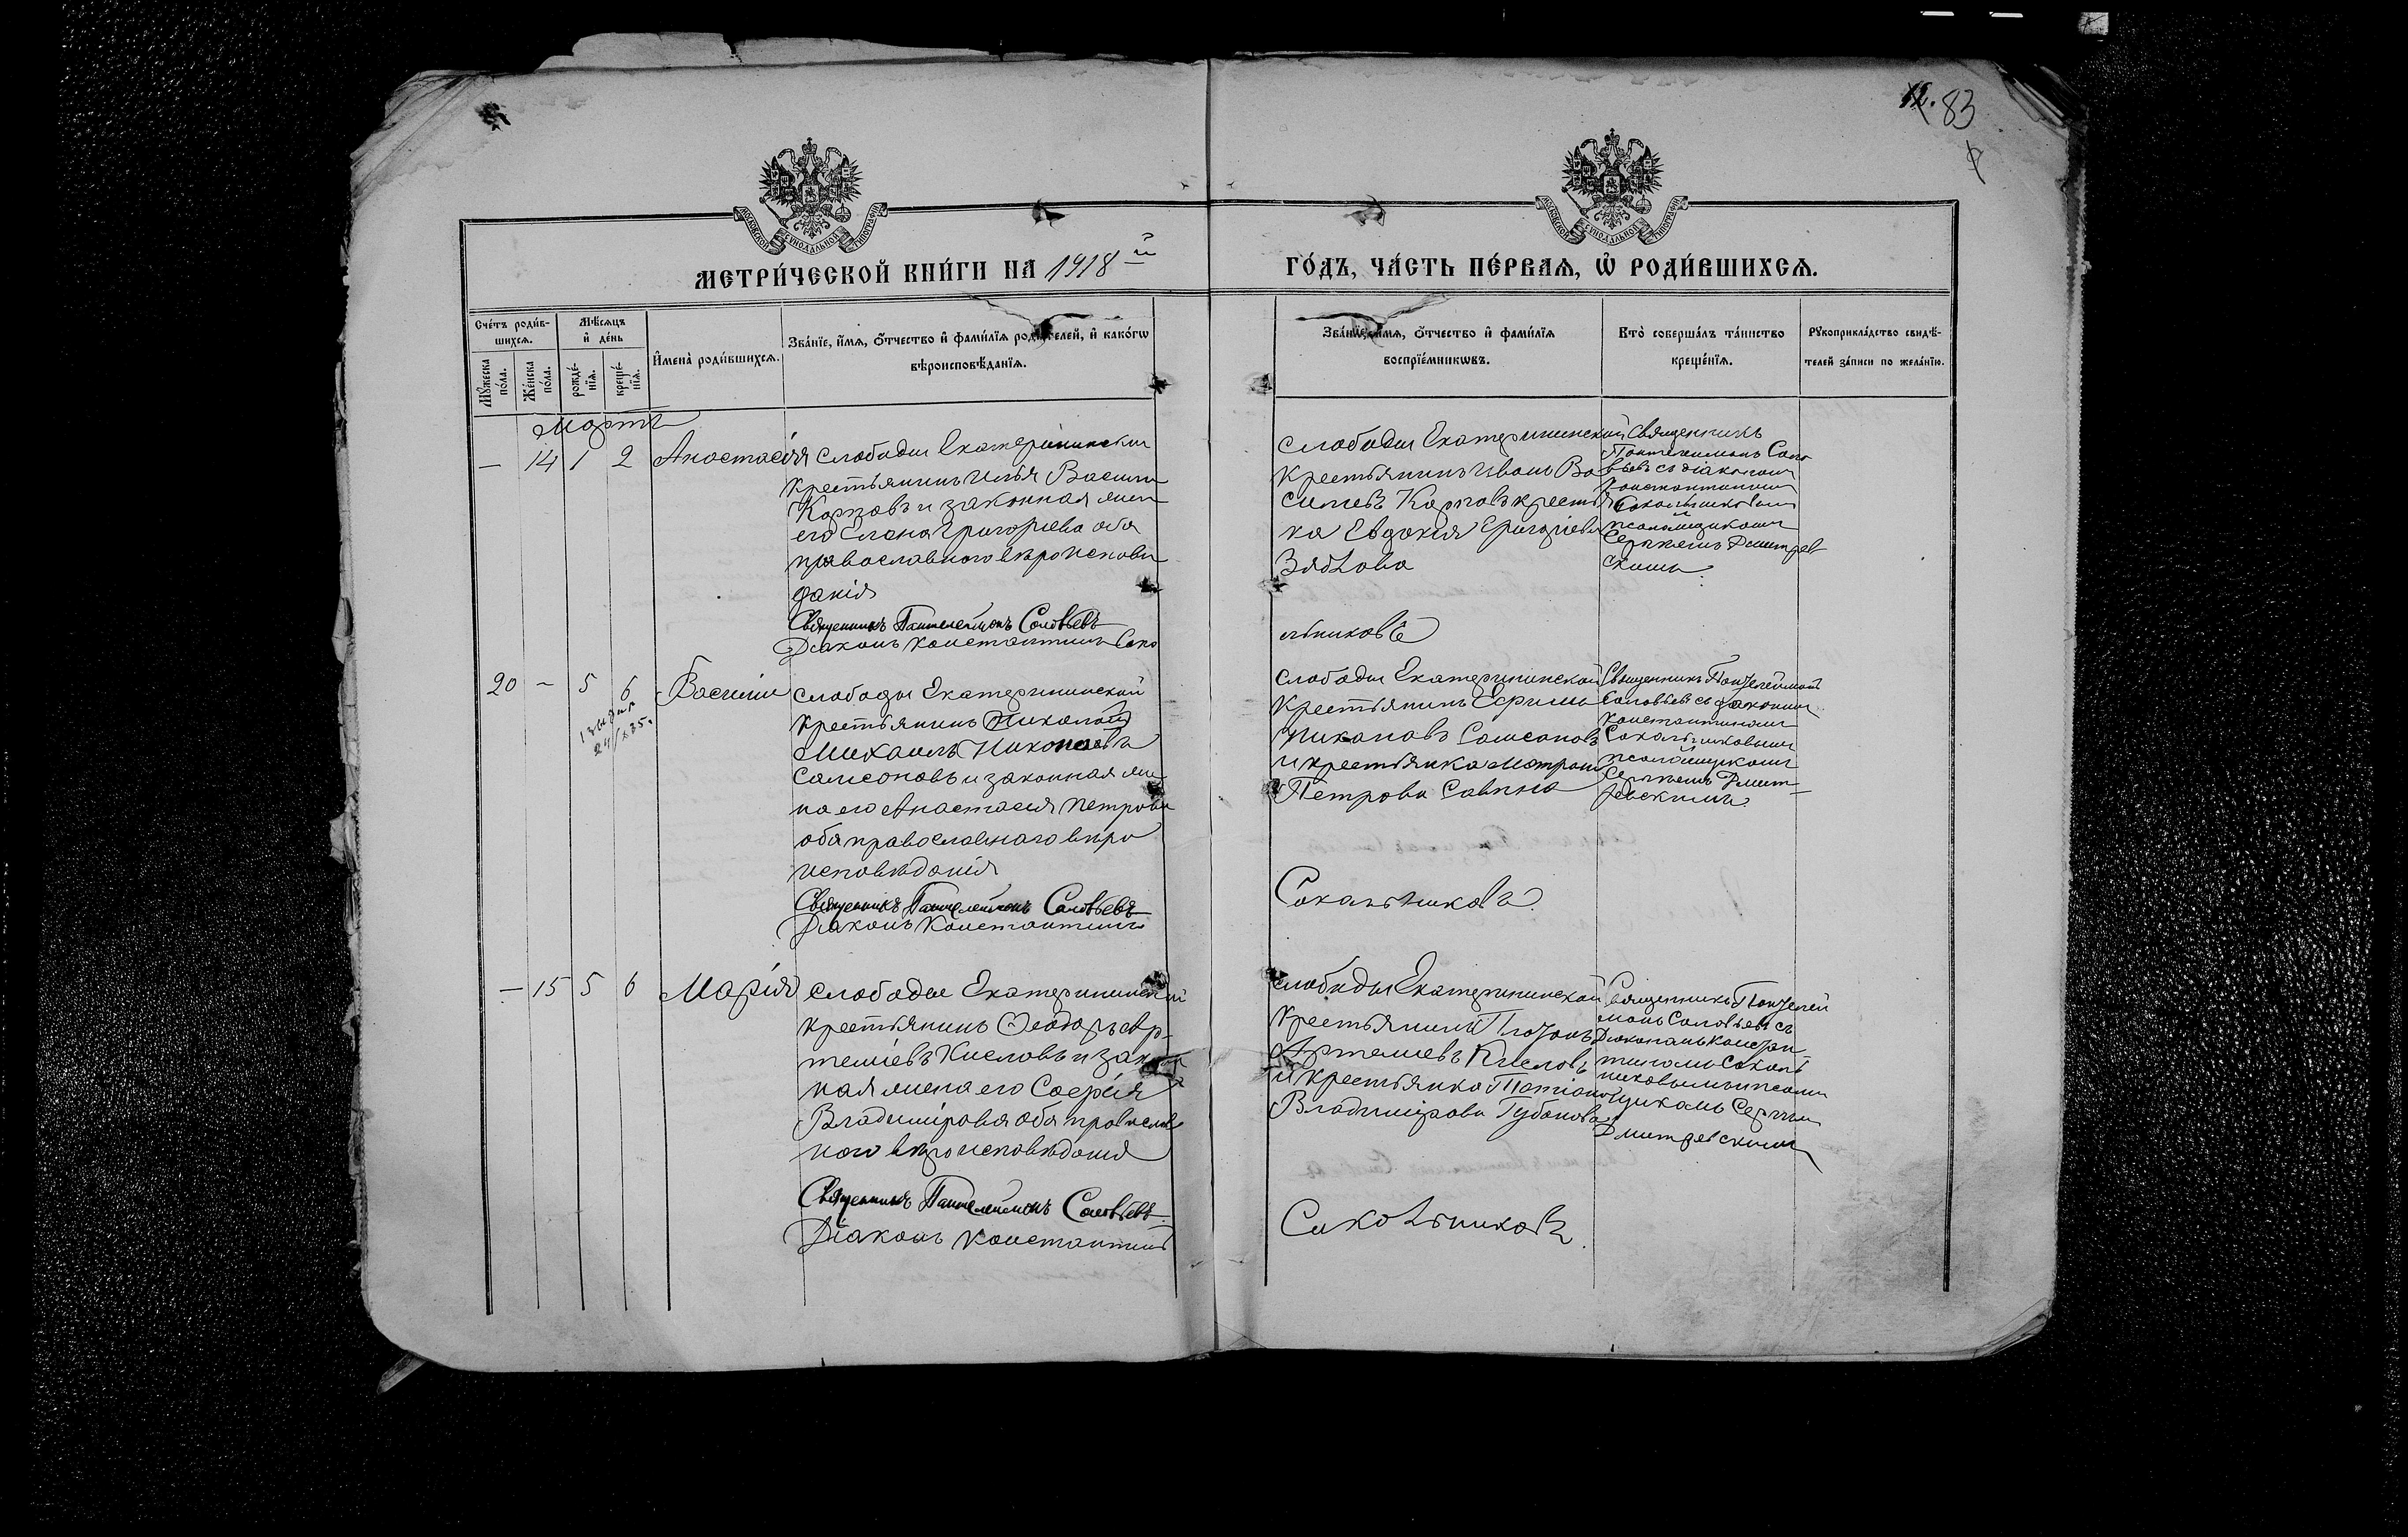 12. 83
МОСКОВСКОЙ СУНОДАЛЬНОЙ ТИПОГРАФІИ
МОСКОВСКОЙ СУНОДАЛЬНОЙ ТИПОГРАФІИ
МЕТРИ́ЧЕСКОЙ КНИ́ГИ НА 1918 й
ГО́ДЪ, ЧА́СТЬ ПЕ́РВАѦ, Ѿ РОДИ́ВШИХСѦ.
Сче́тъ роди́в-
шихсѧ.
Мꙋ́жеска
по́ла.
Же́нска
по́ла.
Мѣ́сѧцъ
и҆ де́нь
рожде́-
нїѧ.
креще́-
нїѧ.
И҆мена̀ роди́вшихсѧ.
Зва́нїе, и҆́мѧ, ѻ҆́тчество и҆ фами́лїѧ роди́телей, и҆ како́гѡ
вѣроисповѣ́данїѧ.
Зва́нїе, и҆́мѧ, ѻ҆́тчество и҆ фами́лїѧ
воспрїе́мникѡвъ.
Кто̀ соверша́лъ та́инство
креще́нїѧ.
Рꙋкоприкла́дство свидѣ́-
телей за́писи по жела́нїю.
Мартъ
— 14 1 2 Анастасія слободы Екатерининской
крестьянинъ Илья Васильев
Карповъ и законная жена
его Елена Григорьева оба
православного вѣроисповѣ
данія
Священникъ Пантелеймонъ Соловьевъ
Діаконъ Константинъ Соко
слободы Екатерининской
крестьянинъ Иванъ Ва
сильев Карповъ крестьян
ка Евдокия Григорьева
Зяблова
льниковъ
Священникъ
Пантелеимонъ Соло
вьевъ съ діакономъ
Константиномъ
Сокольниковымъ
псаломщикомъ
Сергиемъ Дмитрев
скимъ
20 – 5 6 Василій слободы Екатерининской
крестьянинъ Николай
Михаилъ Никоновъ
Самсоновъ и законная же
на его Анастасия Петрова
оба православнаго вѣро
исповѣданія
Священникъ Пантелеймонъ Соловьевъ
Діаконъ Константинъ
24/X 35.
слободы Екатерининской
крестьянинъ Ефимъ
Никоновъ Самсоновъ
и крестьянка Матрона
Петрова Савина
Сокольниковъ.
Священникъ Пантелеймонъ
Соловьевъ съ діакономъ
Константиномъ
Сокольниковымъ
псаломщикомъ
Сергиемъ Дмит-
ревскимъ.
— 15 5 6 Марія слободы Екатерининской
крестьянинъ Ѳеодоръ Ар-
темьевъ Кисловъ и закон
ная жена его Софія
Владимірова оба православ
ного вѣроисповѣданія
Священникъ Пантелеймонъ Соловьевъ.
Діаконъ Константинъ
слободы Екатерининской
крестьянинъ Платонъ
Артемиевъ Кисловъ
и крестьянка Татіана
Владимірова Губанова
Сокольниковъ.
Священникъ Пантелей
монъ Соловьевъ съ
Діакономъ Констан
тиномъ Соколь
никовымъ и псалом
щикомъ Сергиемъ
Дмитревскимъ